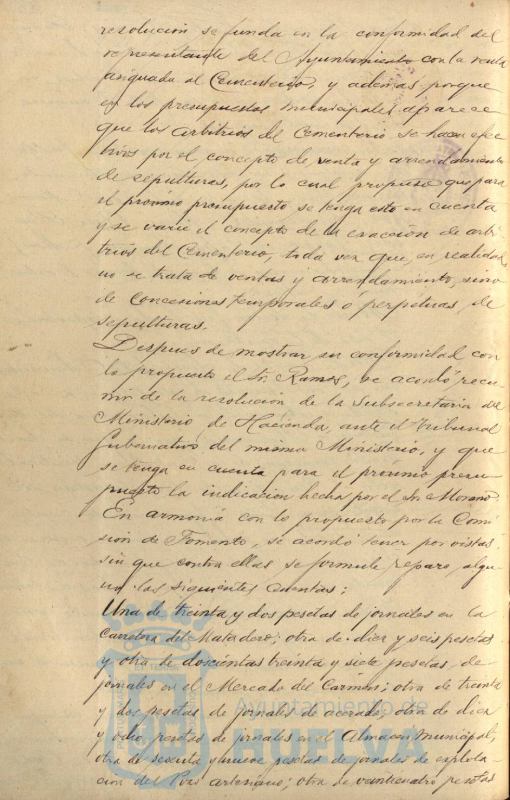 resolución se funda en la conformidad del
representante del Ayuntamiento con la renta
asignada al Cementerio, y además porque
en los presupuestos municipales aparece
que los arbitrios del Cementerio se hacen efec
tivos por el concepto de venta y arrendamiento
de sepulturas, por lo cual propuso que para
el próximo presupuesto se tenga esto en cuenta
y se varíe el concepto de la exacción de arbi
trios del Cementerio, toda vez que, en realidad
no se trata de ventas y arrendamiento, sino
de concesiones temporales ó perpetuas, de
sepulturas.
Despues de mostrar su conformidad con
lo propuesto el Sr. Ramos, se acordó recu
rrir de la resolución de la Subsecretaría del
Ministerio de Hacienda, ante el Tribunal
Gubernativo del mismo Ministerio, y que
se tenga en cuenta para el próximo presu
puesto la indicación hecha por el Sr. Morano
En armonía con lo propuesto por la Comi
sión de Fomento, se acordó tener por vistas,
sin que contra ellas se formule reparo algu
no las siguientes cuentas:
Una de treinta y dos pesetas de jornales en la
Carretera del Matadero; otra de diez y seis pesetas
y otra de doscientas treinta y siete pesetas, de
jornales en el Mercado del Carmen; otra de treinta
y dos pesetas de jornales de acerado; otra de diez
y ocho pesetas de jornales en el Almacén municipal;
otra de sesenta y nueve pesetas de jornales de explota
ción del Pozo artesiano; otra de veinticuatro pesetas
Ayuntamiento de
HUELVA